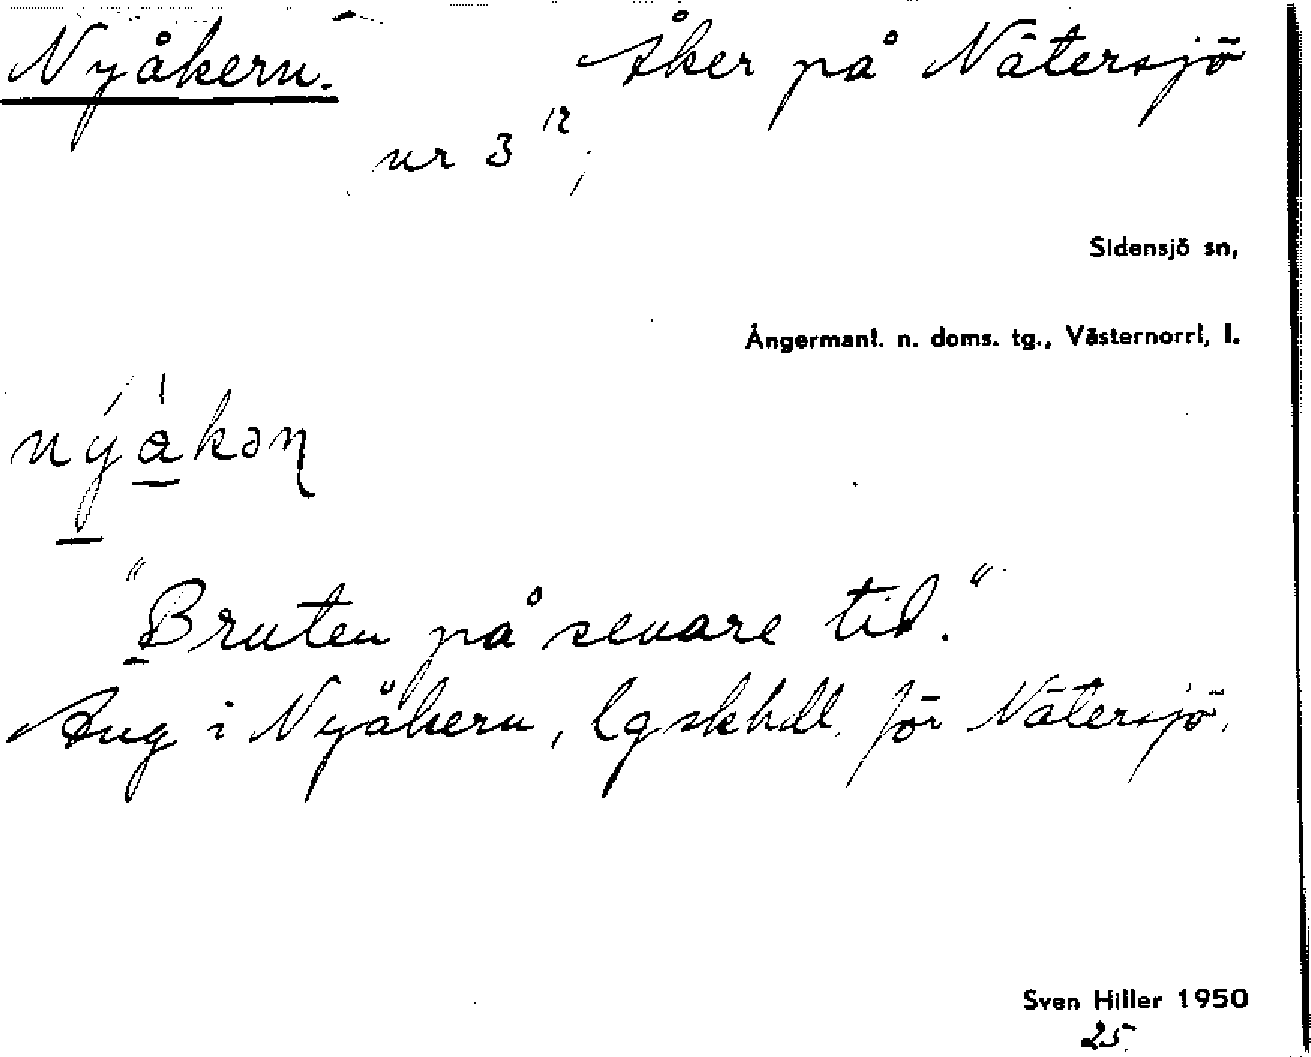 Nyåkern. Åker på Nätersjö
nr 3¹²,
Sidensjö sn,
Ångermanl. n. doms. tg., Västernorrl. l.
nýa̱kəɳ
"Bruten på senare tid."
Ang i Nyåkern, lgskhdl. för Nätersjö.
Sven Hiller 1950
25